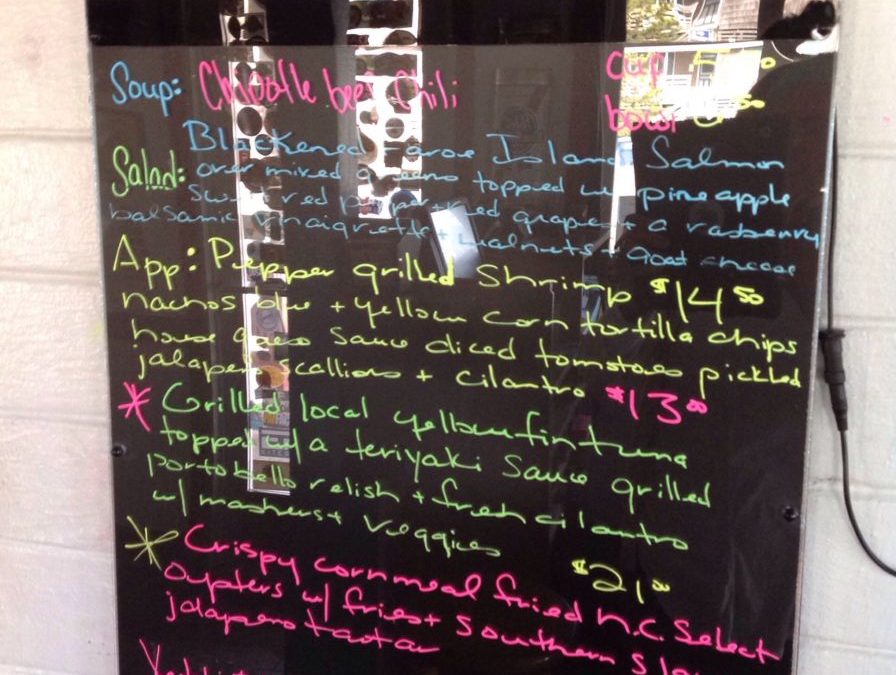 Soup: Chipotle beef Chili cup 5.50
bowl 50
Blackened Faroe Island Salmon
Salad: over mixed greens topped w/ pineapple
sweet red pepper dried grapes + a rasberry
balsamic vinaigrette + walnuts + goat cheese
App: Pepper grilled Shrimp $14.50
nachos blue + yellow corn tortilla chips
house queso sauce diced tomatoes pickled
jalapeno scallions + cilantro $13.00
* Grilled local yellowfin tuna
topped w/ a teriyaki sauce grilled
portobello relish + fresh cilantro
w/ mashers + veggies
$21.00
* Crispy cornmeal fried N.C. Select
Oysters w/ fries + Southern Slaw
jalapeno tartar